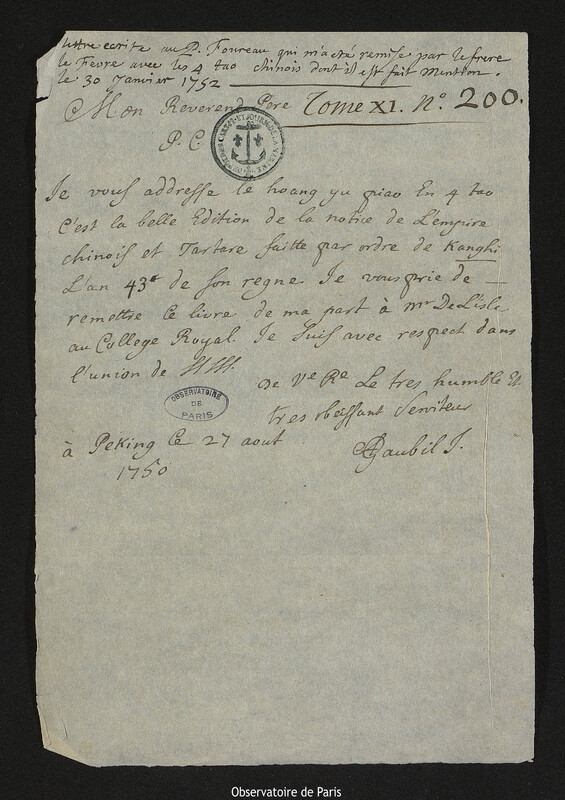 lettre ecrite au P. Foureau qui m'a eté remise par le frere
le Fevre avec les 4 tao chinois dont il est fait mention.
le 30 Janvier 1752
Mon Reverend Pere Tome XI. N° 200.
P. C.
Je vous addresse le hoang yu piao En 4 tao
c'est la belle Edition de la notice de L'empire
chinois et Tartare faitte par ordre de Kanghi
L'an 43e de son regne Je vous prie de
remettre ce livre de ma part à mr De L'isle
au College Royal. Je suis avec respect dans
l'union de SS. SS.
De Ve Re Le tres humble Et
tres obeissant Serviteur
à Peking Ce 27 aout
1750
AGaubil J.
OBSERVATOIRE
DE
PARIS
Observatoire de Paris